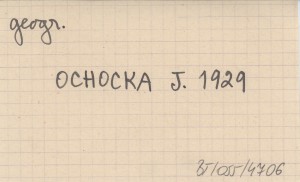 geogr.
OCHOCKA J. 1929
BT/055/4706